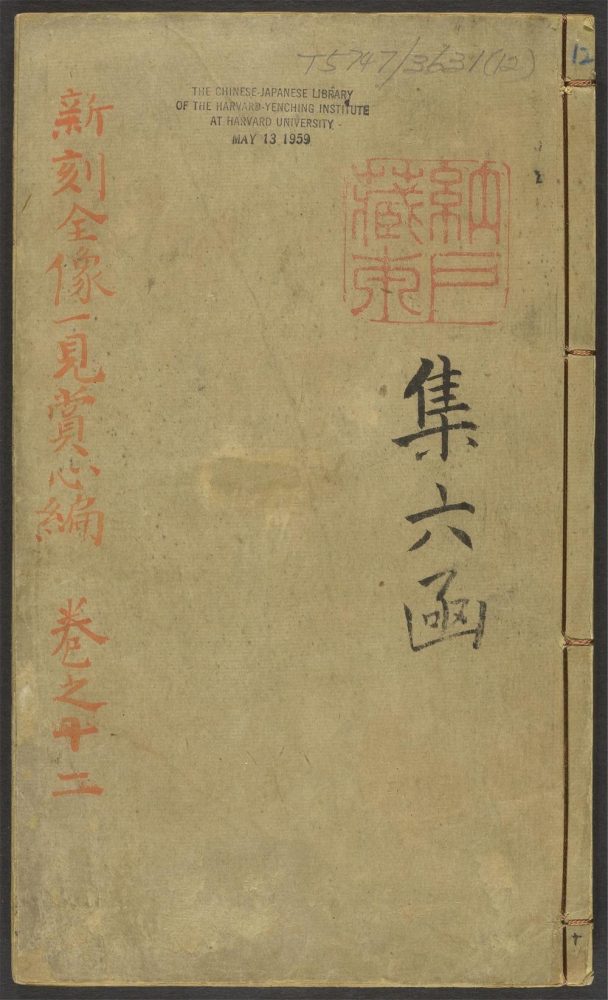 T5747/3631(12)
12
THE CHINESE-JAPANESE LIBRARY
OF THE HARVARD-YENCHING INSTITUTE
AT HARVARD UNIVERSITY
MAY 13 1959
集六函
新刻全像一見賞心編 卷之十二